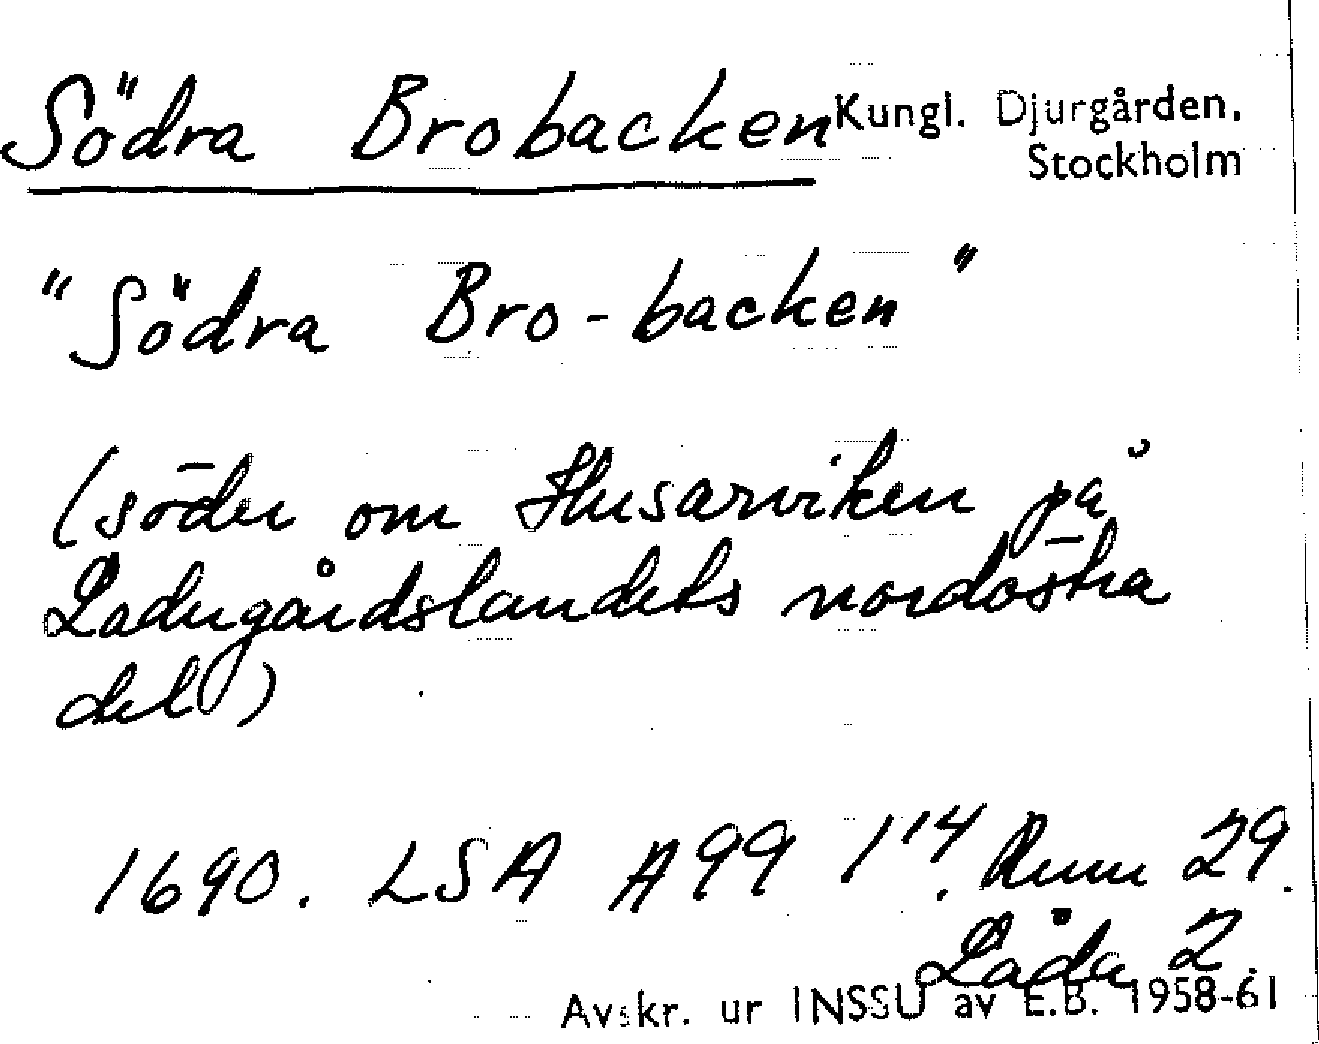 Södra Brobacken Kungl. Djurgården.
Stockholm
"Södra Bro-backen"
(söder om Husarviken på
Ladugårdslandets nordöstra
del)
1690. LSA A99 1:14. Rum 29.
Låda 2.
Avskr. ur INSSU av E.B. 1958-61